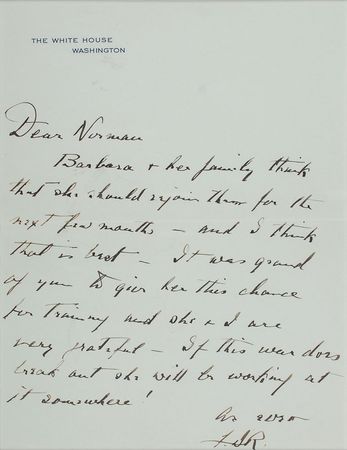 THE WHITE HOUSE
WASHINGTON
Dear Norman
Barbara + her family think
that she should rejoin them for the
next few months – and I think
that is best – It was grand
of you to give her this chance
for training and she + I are
very grateful – If this war does
break out she will be working at
it somewhere!
As ever
FDR.